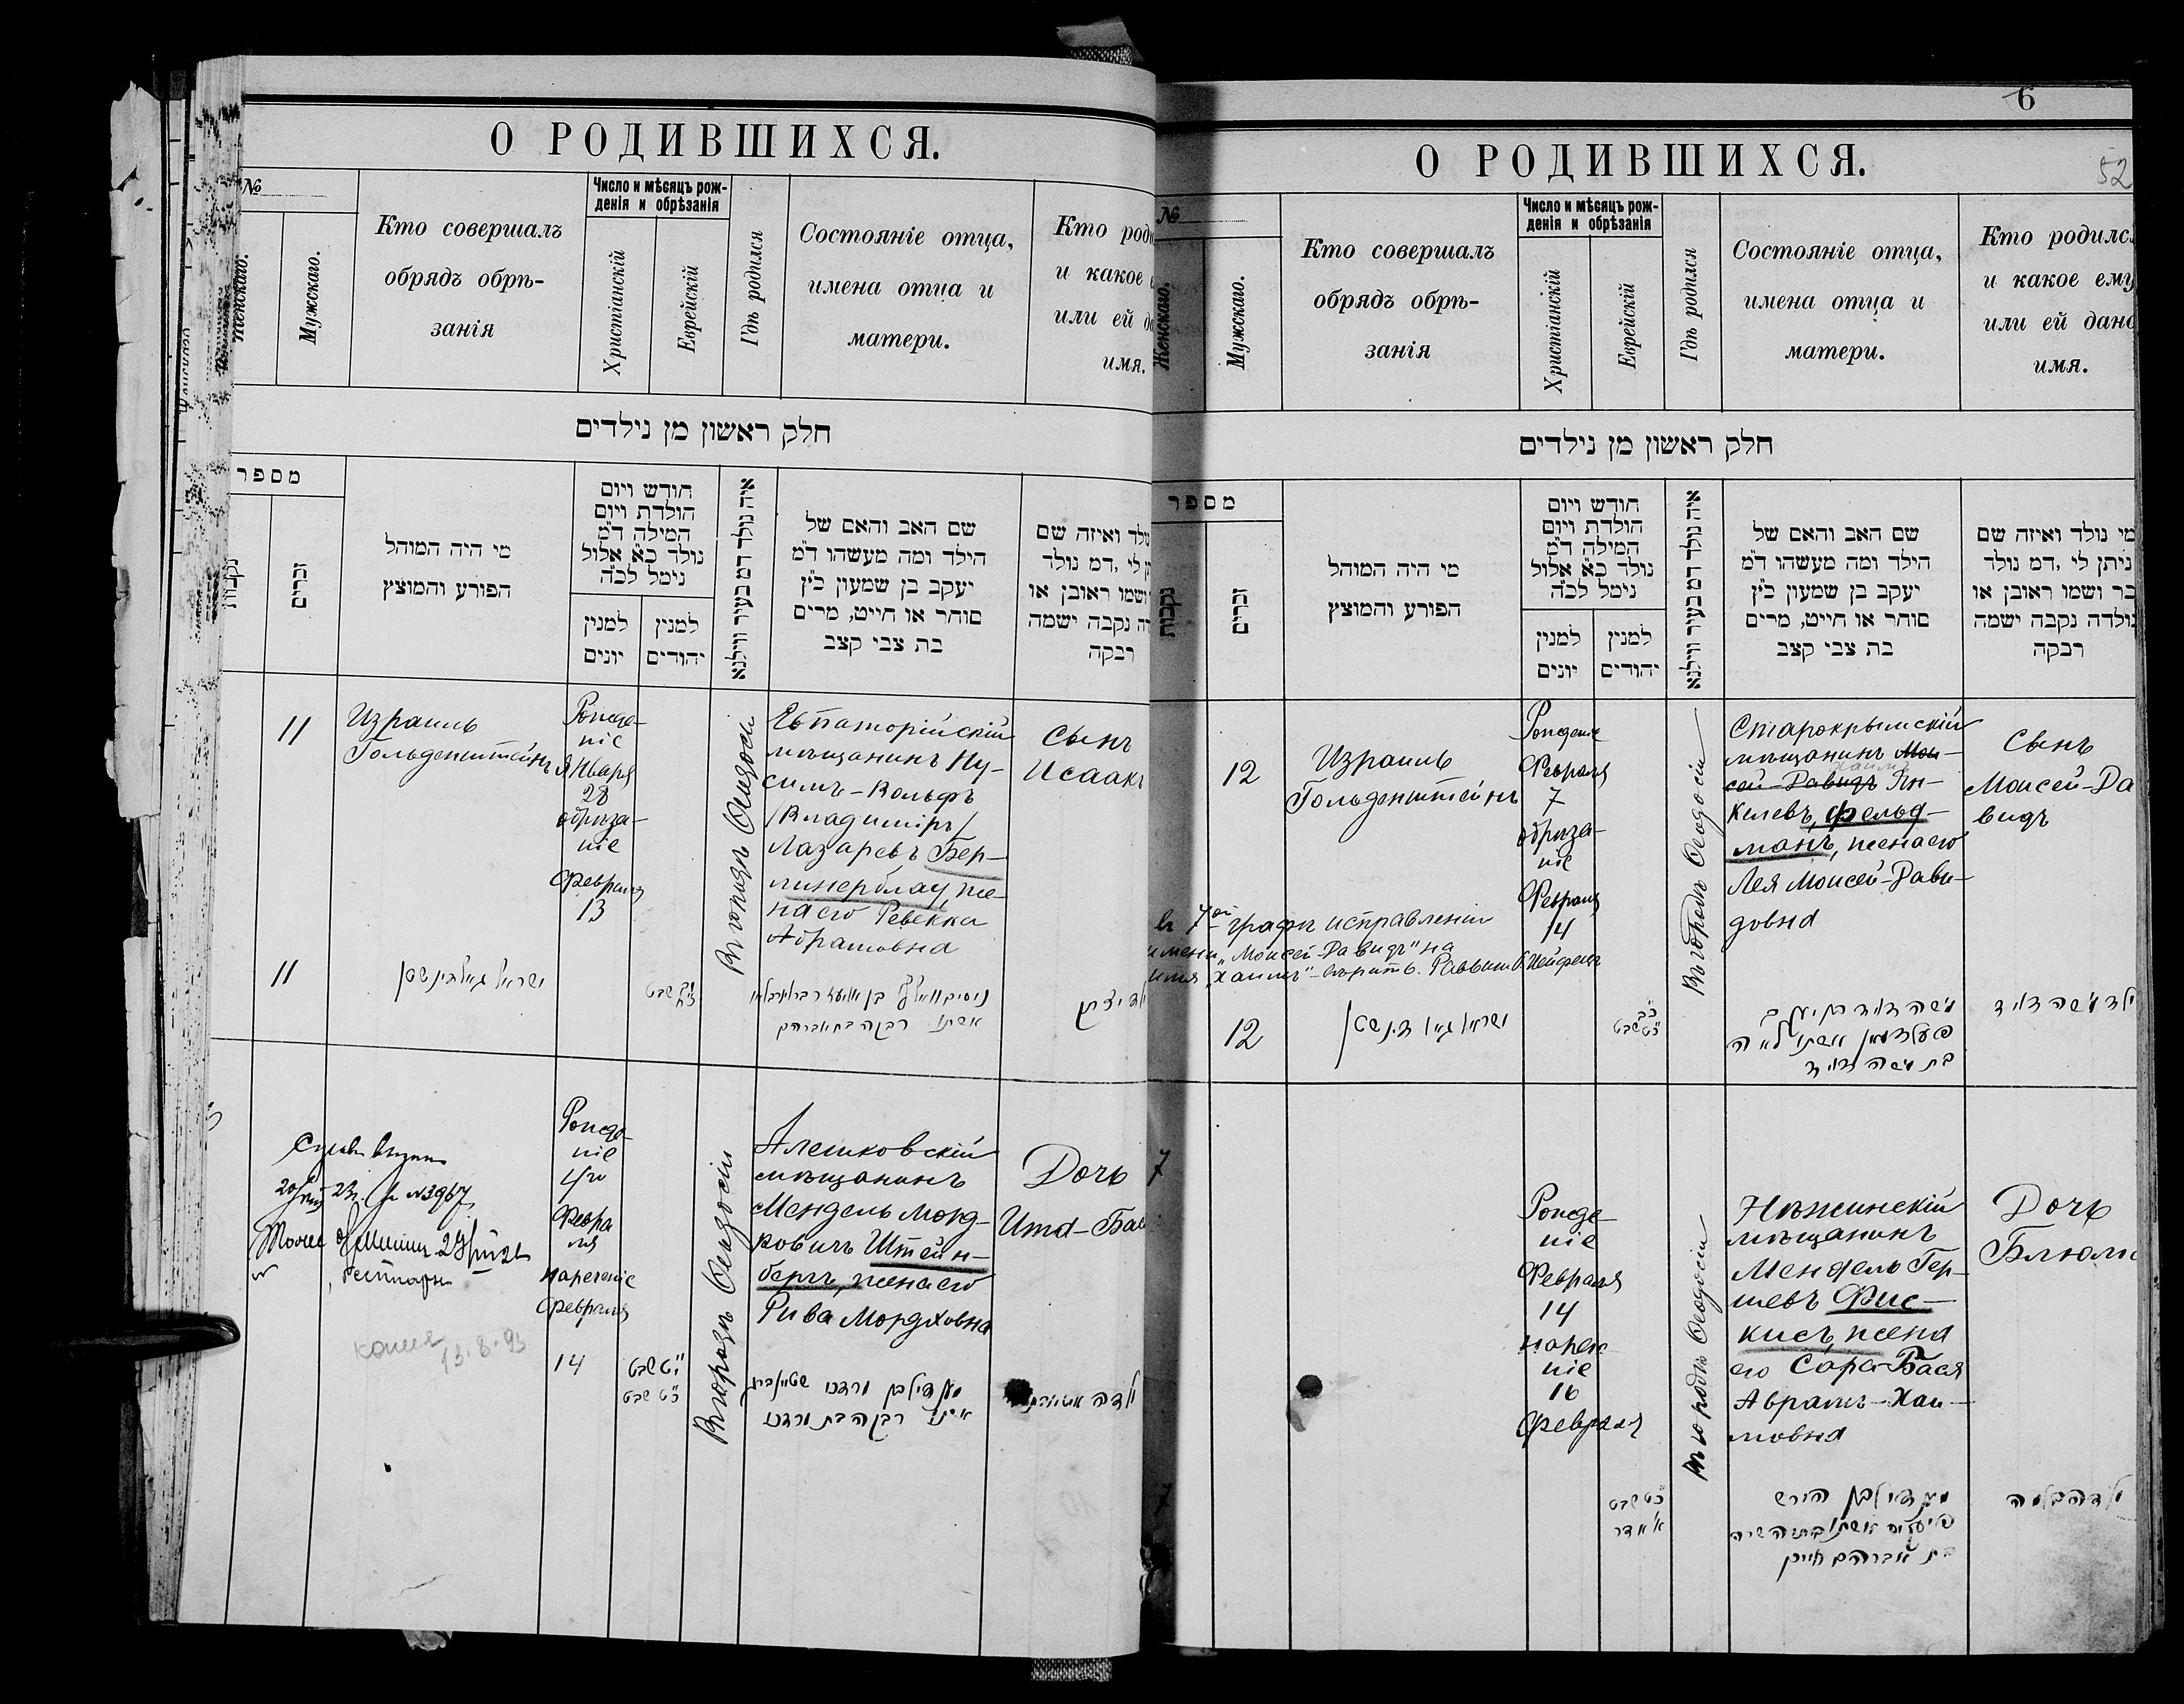 О РОДИВШИХСЯ.
№
Женскаго.
Мужскаго.
Кто совершалъ
обрядъ обрѣ-
занія
Число и мѣсяцъ рож-
денія и обрѣзанія
Христіанскій
Еврейскій
Гдѣ родился
Состояніе отца,
имена отца и
матери.
Кто роди
и какое
или ей д
имя.
חלק ראשון מן נילדים
מספר
נקבות
זכרים
מי היה המוהל
הפורע והמוצץ
חודש ויום
הולדת ויום
המילה ד״מ
נולד כ״א אלול
נימל לכ״ה
למנין
יונים
למנין
יהודים
איה נולד דמ בעיר ווילנא
שם האב והאם של
הילד ומה מעשהו ד״מ
יעקב בן שמעון כ״ץ
סוחר או חייט, מרים
בת צבי קצב
ולד ואיזה שם
ן לי ,דמ נולד
ושמו ראובן או
ה נקבה ישמה
רבקה
11
Израиль
Гольденштейнъ
Рожде-
ніе
Января
28
обрѣза-
ніе
Февраля
13
Въ городѣ Ѳеодосіи
Евпаторійскій
мѣщанинъ Ну-
симъ-Вольфъ
/Владиміръ/
Лазаревъ Бер-
линерблау, же-
на его Ревекка
Абрамовна
Сынъ
Исаакъ
11
שבט
אשתו רבקה בת אברהם
ילד יצחק
Рожде-
ніе
4го
Февра
ля
нареченіе
Февраля
14
Въ городѣ Ѳеодосіи
Алешковскій
мѣщанинъ
Мендель Морд-
ковичъ Штейн-
бергъ, жена его
Рива Мордховна
Дочь
Ита-Бас
копия
13.8.93
י״ט שבט
כ״ט שבט
מענדיל בן מרדכי שטיינברג
אשתו רבקה בת מרדכי
ילדה
6
52
О РОДИВШИХСЯ.
№
Женскаго.
Мужскаго.
Кто совершалъ
обрядъ обрѣ-
занія
Число и мѣсяцъ рож-
денія и обрѣзанія
Христіанскій
Еврейскій
Гдѣ родился
Состояніе отца,
имена отца и
матери.
Кто родилс
и какое ему
или ей дано
имя.
חלק ראשון מן נילדים
מספר
נקבות
זכרים
מי היה המוהל
הפורע והמוצץ
חודש ויום
הולדת ויום
המילה ד״מ
נולד כ״א אלול
נימל לכ״ה
למנין
יונים
למנין
יהודים
איה נולד דמ בעיר ווילנא
שם האב והאם של
הילד ומה מעשהו ד״מ
יעקב בן שמעון כ״ץ
סוחר או חייט, מרים
בת צבי קצב
מי נולד ואיזה שם
ניתן לי ,דמ נולד
בר ושמו ראובן או
נולדה נקבה ישמה
רבקה
12
Израиль
Гольденштейнъ
Рожденіе
Февраля
7
обрѣза-
ніе
Февраля
14
Въ городѣ Ѳеодосіи
Старокрымскій
мѣщанинъ Мои-
Хаимъ
сей-Давидъ Ян-
келевъ, Фельд-
манъ, жена его
Лея Моисей-Дави-
довна
Сынъ
Моисей-Да
видъ
въ 7ой графѣ исправленіе
имени „Моисей-Давидъ" на
имя „Хаимъ"-вѣрить. Раввинъ
12
כ״ב
כ״ט שבט
משה דוד בן יעקב
פעלדמאן אשתו לאה
בת משה דוד
ילד משה דוד
7
Рожде-
ніе
Февраля
14
нарече-
ніе
16
Февраля
Въ городѣ Ѳеодосіи
Нѣжинскій
мѣщанинъ
Мендель Гер-
шевъ Фис-
кисъ, жена
его Сора-Бася
Абрамъ-Хаи-
мовна
Дочь
Блюма
7
כ״ט שבט
א׳ אדר
מענדיל בן הירש
בת אברהם חיים
ילדה בלומה